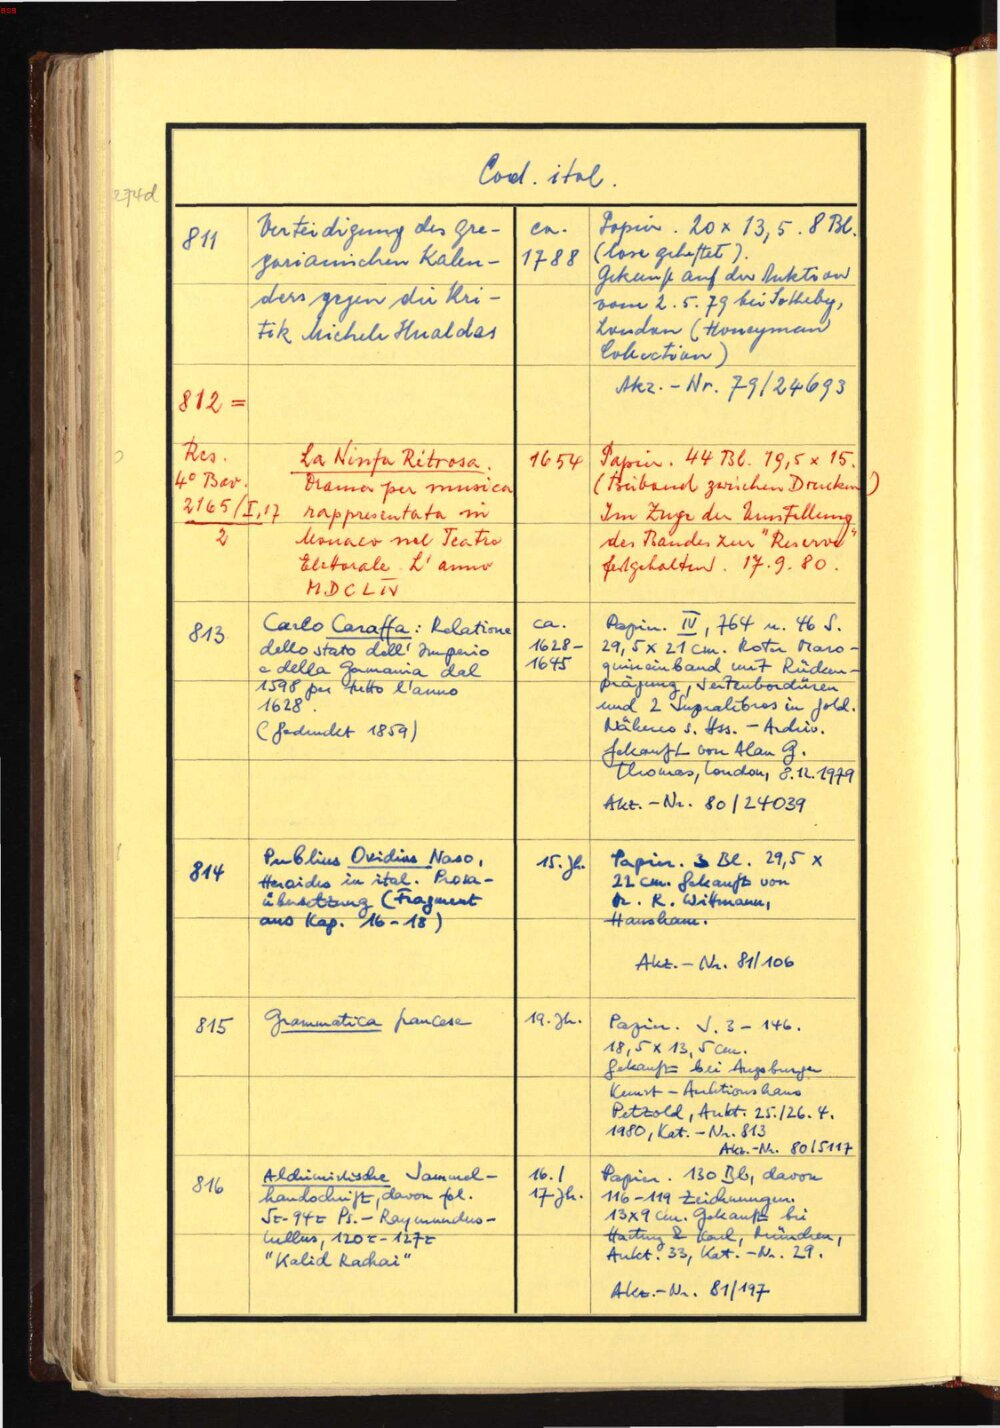 274d
Cod. ital.
811
Verteidigung des Gre-
gorianischen Kalen-
ders gegen die Kri-
tik Michele Hualdas
ca.
1788
Papier. 20 x 13,5. 8 Bl.
(lose geheftet).
Gekauft auf der Auktion
vom 2.5.79 bei Sotheby,
London (Honeyman
Collection)
Akz.-Nr. 79/24693
812 =
Res.
4° Bav.
2165/I,17
2
La Ninfa Ritrosa.
Drama per musica
rappresentata in
Monaco nel Teatro
Elettorale L'anno
MDCLIV
1654
Papier. 44 Bl. 19,5 x 15.
(Beiband zwischen Drucken)
Im Zuge der Umstellung
des Bandes zur "Reserve"
festgehalten. 17.9.80.
813
Carlo Caraffa: Relatione
dello stato dell' Imperio
e della Germania dal
1598 per tutto l'anno
1628.
(Gedruckt 1859)
ca.
1628-
1645
Papier. IV, 764 u. 46 S.
29,5 x 21 cm. Roter Maro-
quineinband mit Rücken-
prägung, Seitenbordüren
und 2 Supralibros in Gold.
Näheres s. Hss.-Archiv.
Gekauft von Alan G.
Thomas, London, 8.12.1979
Akz.-Nr. 80/24039
814
Publius Ovidius Naso,
Heroides in ital. Prosa-
übersetzung (Fragment
aus Kap. 16-18)
15. Jh.
Papier. 3 Bl. 29,5 x
22 cm. Gekauft von
Dr. R. Wittmann,
Hausham.
Akz.-Nr. 81/106
815
Grammatica francese
19. Jh.
Papier. S. 3-146.
18,5 x 13,5 cm.
Gekauft bei Augsburger
Kunst-Auktionshaus
Petzold, Aukt. 25./26.4.
1980, Kat.-Nr. 813
Akz.-Nr. 80/5117
816
Alchimistische Sammel-
handschrift, davon fol.
5r-94r Ps.-Raymundus-
Lullus, 120r-127r
"Kalid Rachai"
16./
17. Jh.
Papier. 130 Bl., davon
116-119 Zeichnungen.
13x9 cm. Gekauft bei
Hartung & Karl, München,
Aukt. 33, Kat.-Nr. 29.
Akz.-Nr. 81/197